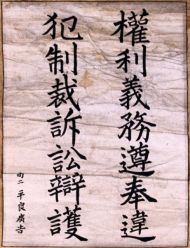 權利義務遵奉違
犯制裁訴訟辯護
町二 平良廣吉